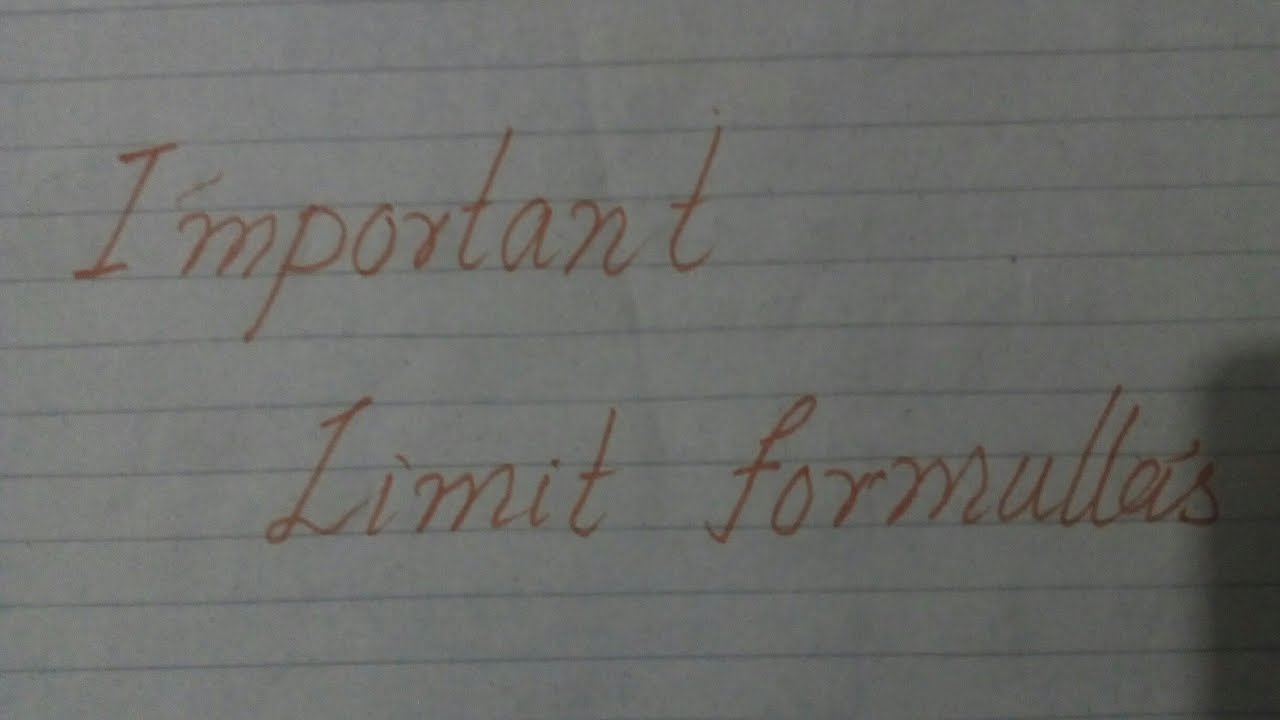 Important
Limit formulla's